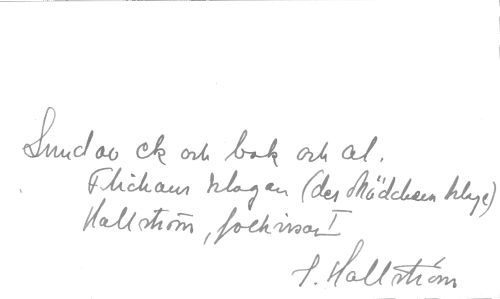 Lund av ek och bok och al.
Flickans klagan (des Mädchens klage)
Hallström, folkvisor I
I. Hallström